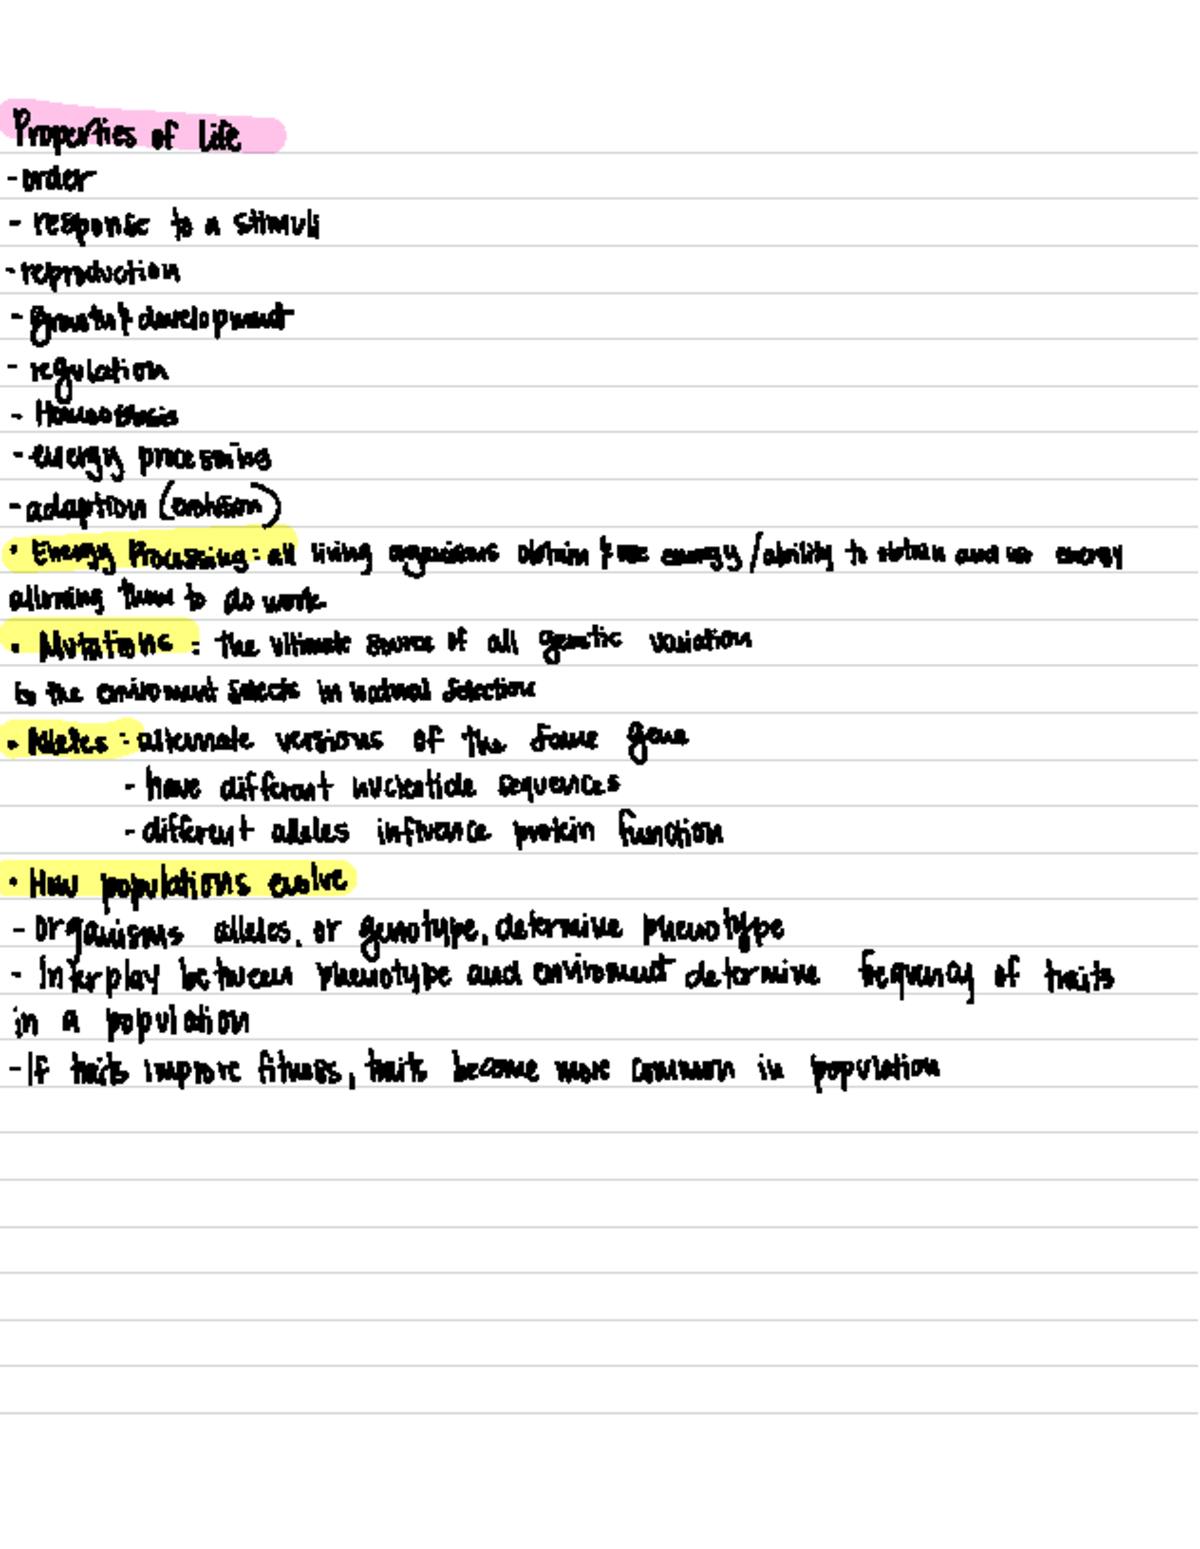 Properties of life
- order
- response to a stimuli
- reproduction
- growth & development
- regulation
- Homeostasis
- energy processing
- adaption (evolution)
• Energy Processing: all living organisms obtain & use energy / ability to obtain and use energy
allowing them to do work
• Mutations: the ultimate source of all genetic variation
to the enviroment selects in natural selection
• Alleles: alternate versions of the same gene
- have different nucleotide sequences
- different alleles influence protein function
• How populations evolve
- organisms alleles, or genotype, determine phenotype
- Interplay between phenotype and enviroment determine frequency of traits
in a population
- If traits improve fitness, traits become more common in population